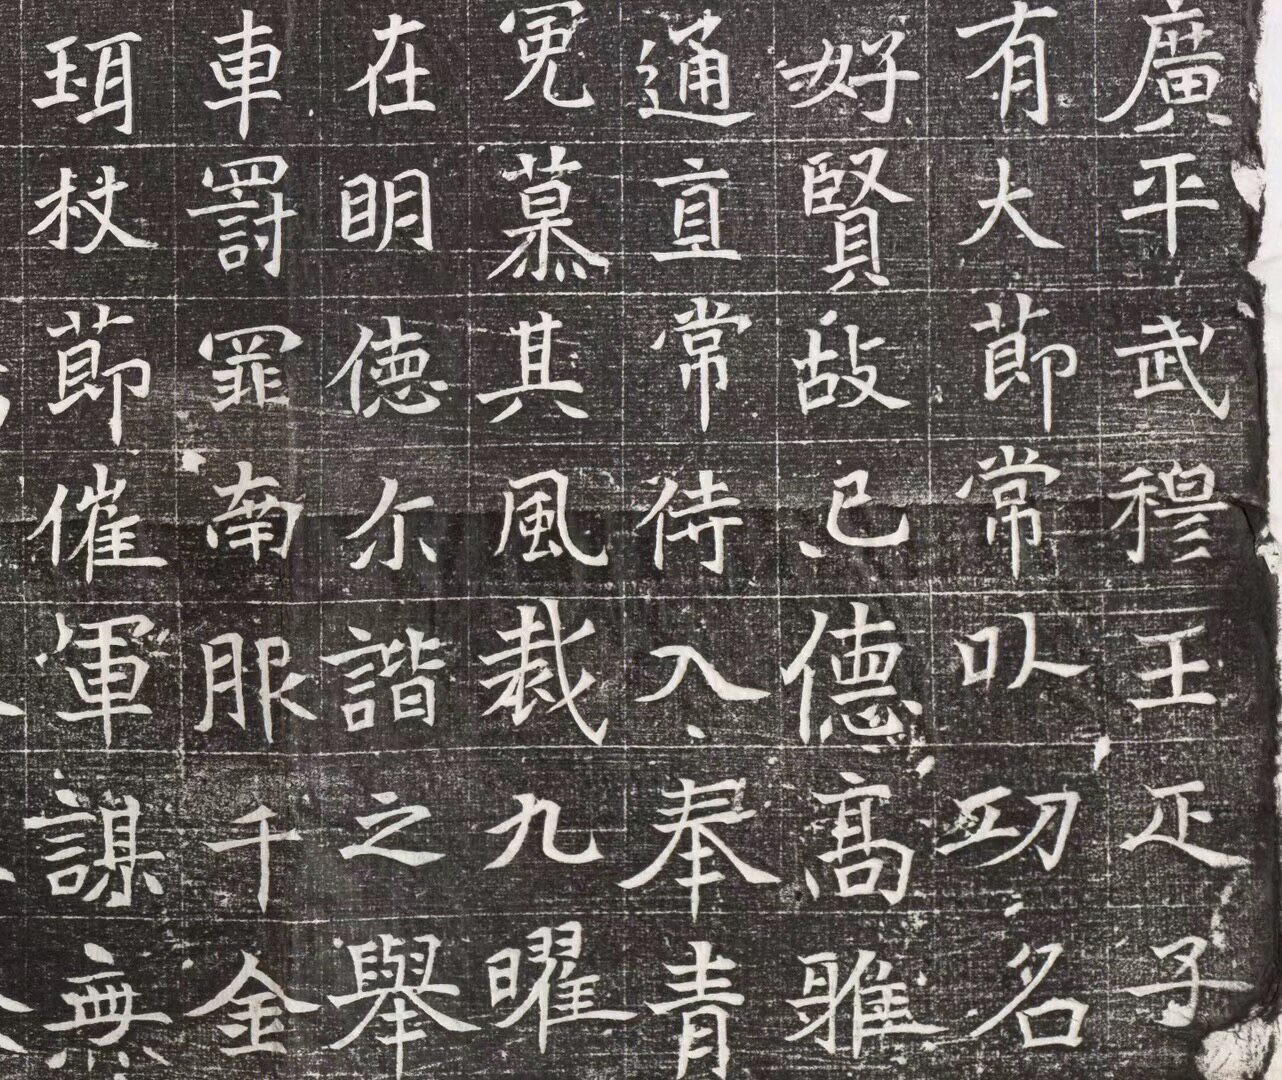 廣平武穆王疋子
有大莭常以功名
好賢故已德高雅
通直常侍入奉青
冕慕其風裁九曜
在明德尔諧之舉
車罰罪南服千金
珥杖莭催軍謀無